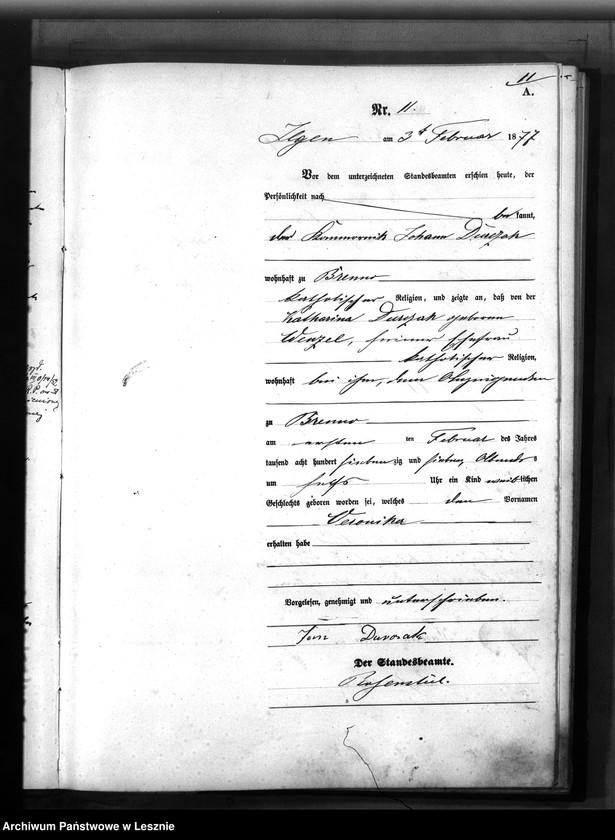 11
A.
Nr. 11.
Ilgen am 3t Februar 1877
Vor dem unterzeichneten Standesbeamten erschien heute, der
Persönlichkeit nach
bekannt,
der Kommornik Johann Durczak
wohnhaft zu Brenno
katholischer Religion, und zeigte an, daß von der
Katharina Durczak geboren
Wenzel, seiner Ehefrau
katholischer Religion,
wohnhaft bei ihm, dem Anzeigenden
zu Brenno
am ersten ten Februar des Jahres
tausend acht hundert siebenzig und sieben, Abends
um sechs Uhr ein Kind weiblichen
Geschlechts geboren worden sei, welches den Vornamen
Veronika
erhalten habe
Vorgelesen, genehmigt und unterschrieben.
Jan
Der Standesbeamte.
Rosenstiel.
Archiwum Państwowe w Lesznie